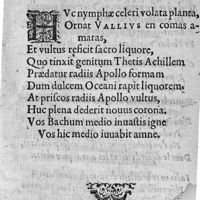 HVc nymphæ celeri volata planta,
Ornat VALLIVS en comas a-
maras,
Et vultus reficit sacro liquore,
Quo tinxit genitum Thetis Achillem
Prædatur radiis Apollo formam
Dum dulcem Oceani rapit liquorem.
At priscos radiis Apollo vultus,
Huc plena dederit nouus corona.
Vos Bachum medio inuastis igne
Vos hic medio iuuabit amne.